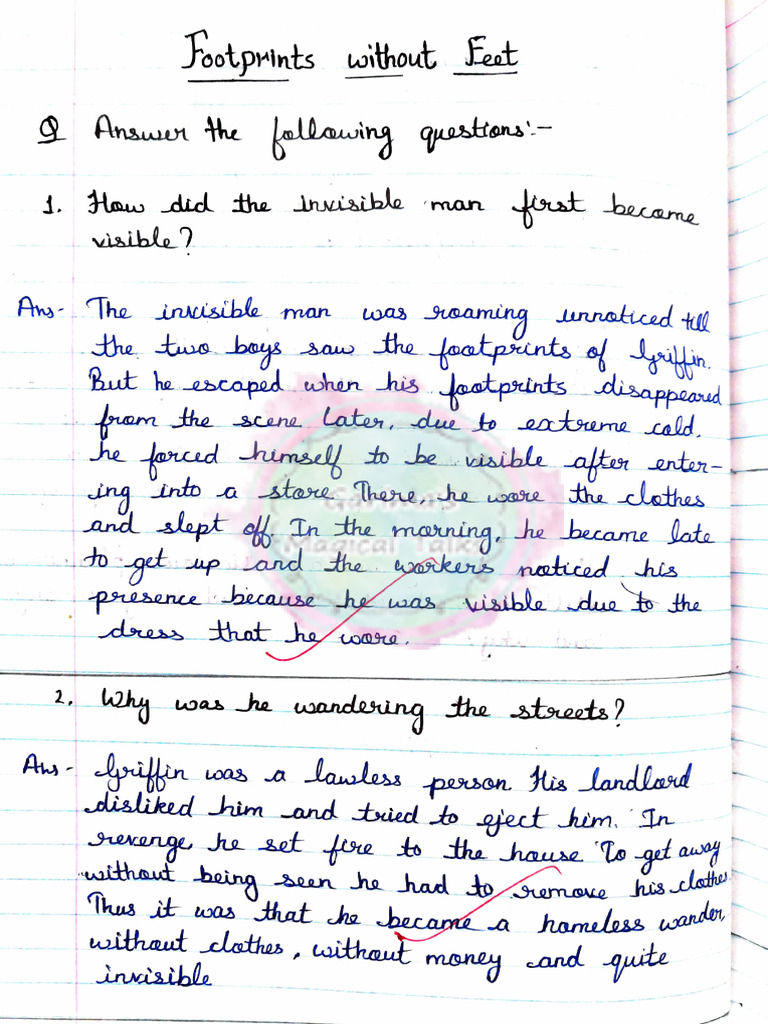 Footprints without Feet
Q Answer the following questions:-
1. How did the invisible man first become
visible?
Ans- The invisible man was roaming unnoticed till
the two boys saw the footprints of Griffin.
But he escaped when his footprints disappeared
from the scene later, due to extreme cold,
he forced himself to be visible after enter-
ing into a store. There, he wore the clothes
and slept off. In the morning, he became late
to get up and the workers noticed his
presence because he was visible due to the
dress that he wore.
2. Why was he wandering the streets?
Ans- Griffin was a lawless person His landlord
disliked him and tried to eject him. In
revenge, he set fire to the house To get away
without being seen he had to remove his clothes.
Thus it was that he became a homeless wander,
without clothes, without money and quite
invisible
Garima's
Magical Talks